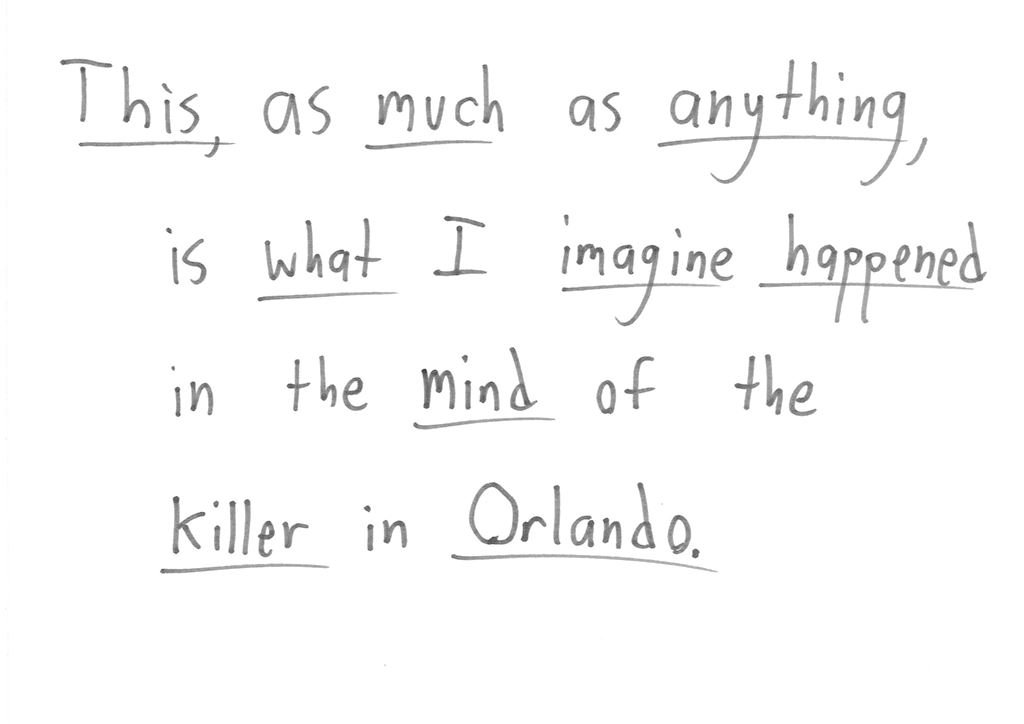 This, as much as anything,
is what I imagine happened
in the mind of the
killer in Orlando.